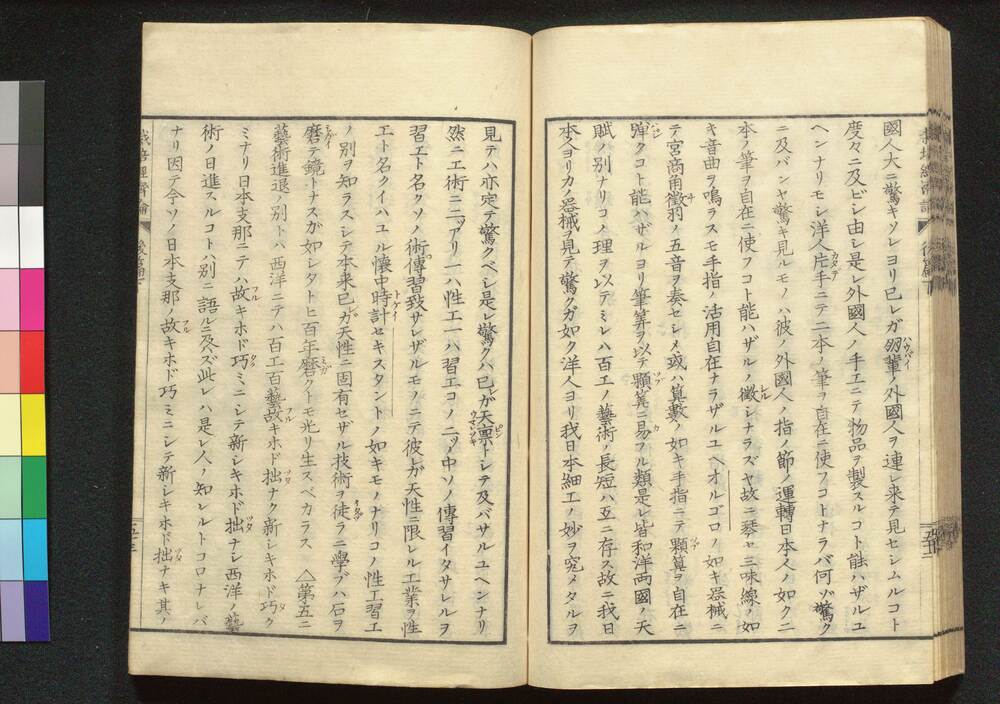 國人大ニ驚キソレヨリ已レガ朋輩ノ外國人ヲ連レ来テ見セシムルコト
度々ニ及ビシ由シ是レ外國人ノ手工ニテ物品ヲ製スルコト能ハザルユ
ヘンナリモシ洋人片手ニテ二本ノ筆ヲ自在ニ使フコトナラバ何ゾ驚ク
ニ及バンヤ驚キ見ルモノハ彼ノ外國人ノ指ノ節ノ運轉日本人ノ如ク二
本ノ筆ヲ自在ニ使フコト能ハザルノ徴シナラズヤ故ニ琴ヤ三味線ノ如
キ音曲ヲ鳴ラスモ手指ノ活用自在ナラザルユヘオルゴロノ如キ器械ニ
テ宮商角徴羽ノ五音ヲ奏セシメ或ハ算數ノ如キ手指ニテ顆算ヲ自在ニ
彈クコト能ハザルヨリ筆算ヲ以テ顆算ニ易フル類是レ皆和洋両國ノ天
賦ノ別ナリコノ理ヲ以テミレハ百工ノ藝術ノ長短ハ互ニ存ス故ニ我日
本人ヨリカノ器械ヲ見テ驚クガ如ク洋人ヨリ我日本細工ノ妙ヲ究メタルヲ
見テハ亦定テ驚クベシ是レ驚クハ已レガ天禀トシテ及バサルユヘンナリ
然ニ工術ニ二ツアリ一ハ性工一ハ習工コノ二ツノ中ソノ傳習イタサレルヲ
習工ト名クソノ術傳習致サレザルモノニテ彼レガ天性ニ限レル工業ヲ性
工ト名クイハユル懐中時計セキスタントノ如キモノナリコノ性工習工
ノ別ヲ知ラスシテ本来已レガ天性ニ固有セザル技術ヲ徒ラニ學ブハ石ヲ
磨テ鏡トナスガ如シタトヒ百年磨クトモ光リ生スベカラス △第五ニ
藝術進退ノ別トハ西洋ニテハ百工百藝故キホド拙ナク新シキホド巧ク
ミナリ日本支那ニテハ故キホド巧ミニシテ新シキホド拙ナシ西洋ノ藝
術ノ日進スルコトハ別ニ語ルニ及ズ此レハ是レ人ノ知レルトコロナレバ
ナリ因テ今ソノ日本支那ノ故キホド巧ミニシテ新シキホド拙ナキ其ノ